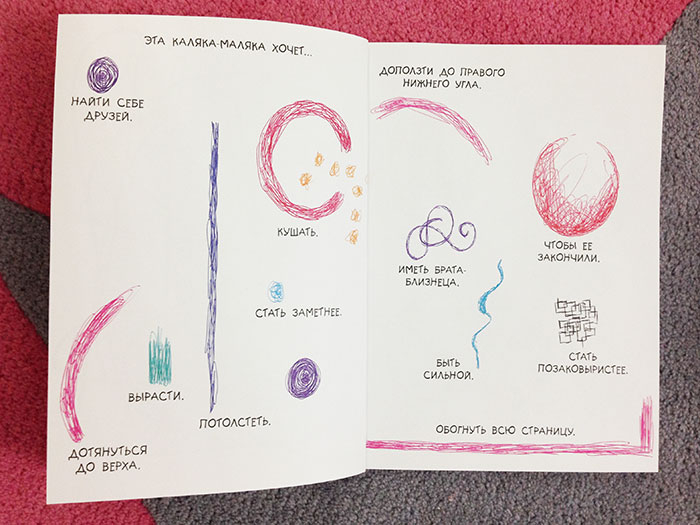 ЭТА КАЛЯКА-МАЛЯКА ХОЧЕТ...
НАЙТИ СЕБЕ
ДРУЗЕЙ.
КУШАТЬ.
СТАТЬ ЗАМЕТНЕЕ.
ВЫРАСТИ.
ПОТОЛСТЕТЬ.
ДОТЯНУТЬСЯ
ДО ВЕРХА.
ДОПОЛЗТИ ДО ПРАВОГО
НИЖНЕГО УГЛА.
ЧТОБЫ ЕЕ
ЗАКОНЧИЛИ.
ИМЕТЬ БРАТА-
БЛИЗНЕЦА.
БЫТЬ
СИЛЬНОЙ.
СТАТЬ
ПОЗАКОВЫРИСТЕЕ.
ОБОГНУТЬ ВСЮ СТРАНИЦУ.